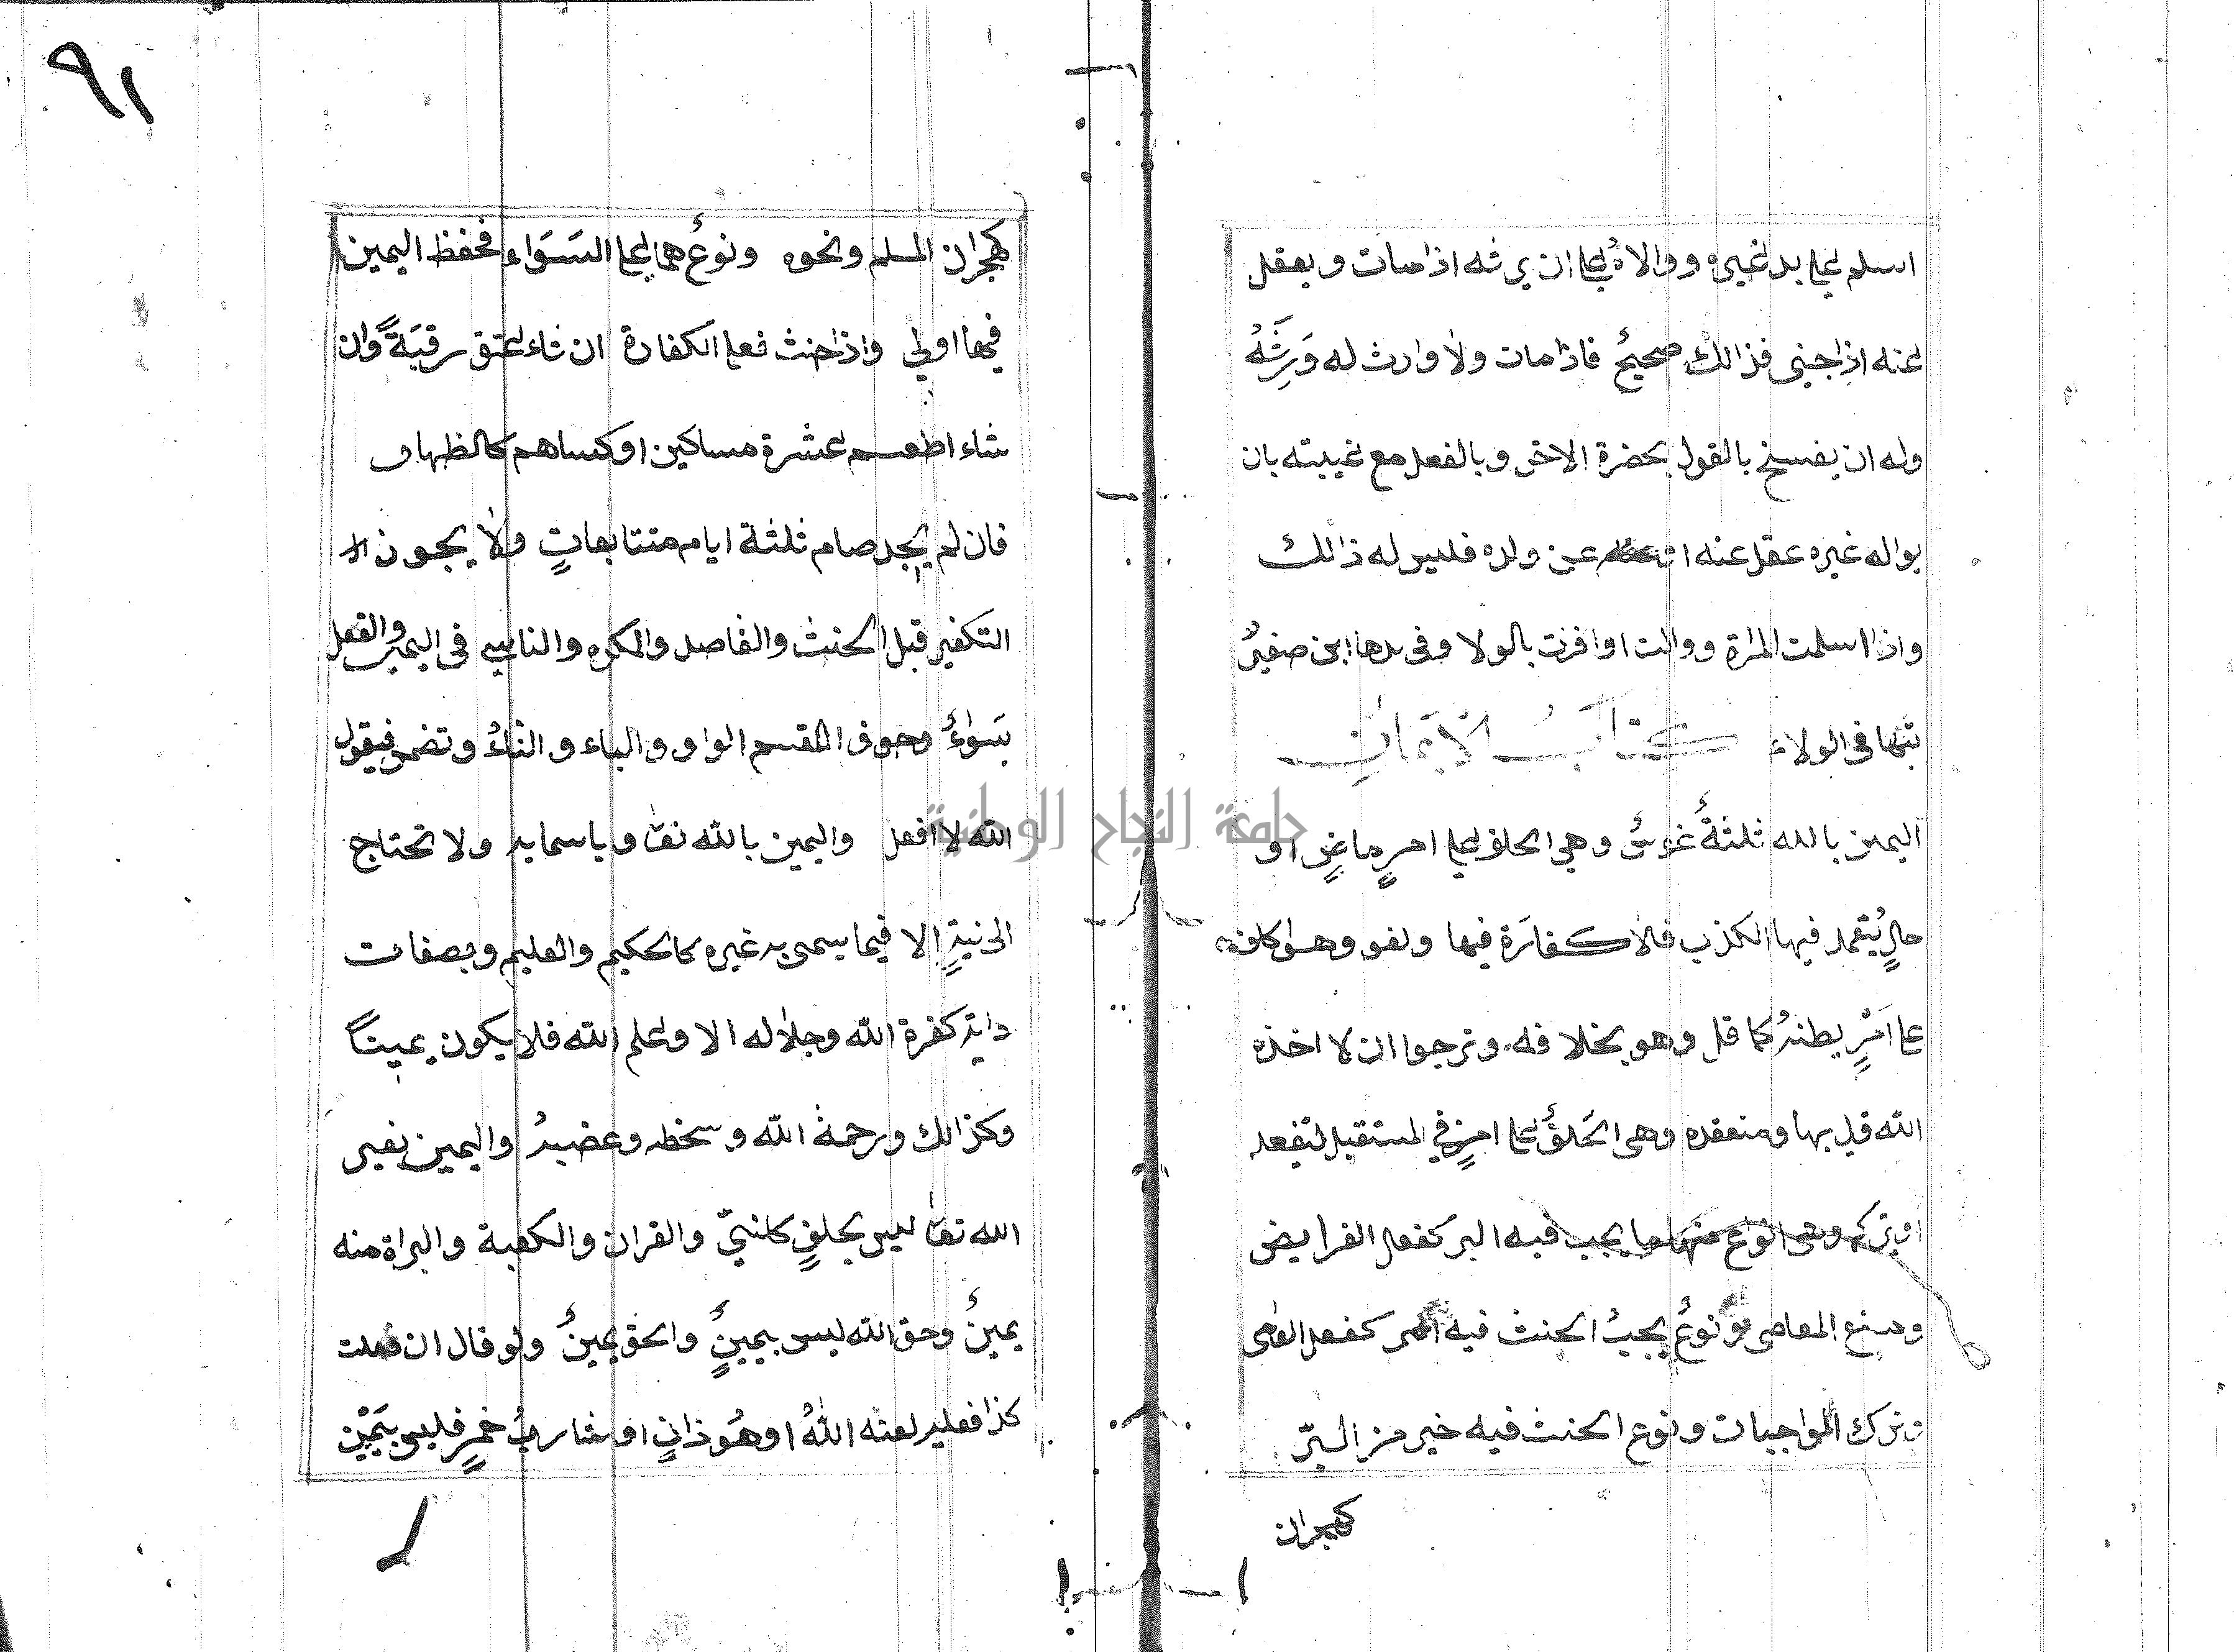 ٩١
اسلم على يد غيره ووالاه على ان يرثه اذا مات ويعقل
عنه اذا جنى فذالك صحيح فاذا مات ولا وارث له وَرِثَهُ
وله ان يفسخ بالقول بحضرة الاخر وبالفعل مع غيبته بان
يواله غيره عقل عنه عن ولده فليس له ذالك
واذا اسلمت المراة ووالت او اقرت بالولا وفى يدها ابن صغيرٌ
تبعها فى الولاء كتابُ الايمانِ
اليمين بالله ثلثةٌ غموسٌ وهى الحلف على امرٍ ماضٍ او
حالٍ يتعمد فيها الكذب فلا كفارَة فيها ولغو وهو
على امرٍ يظنه كما قل وهو بخلافه وترجوا ان لا اخذه
الله قل بها ومنعقده وهى الحَلفُ على امرٍ في المستقبل لتفعله
او تركه وهى انواع منها ما يجب فيه البر كفعل الفرايض
ومنع المعاصى ونوعٌ يجبُ الحنث فيه كفعل المعاصى
وترك الواجبات ونوع الحنث فيه خير من البرّ
كهجران
كهجران المسلم ونحوه ونوعٌ هما على السَوَاء فحفظ اليمين
فيها اولى واذا حنث فعليه الكفارة ان شاء عتق رقبَةً وان
شاء اطعم عشرة مساكين او كساهم كالظهار
فان لم يجد صام ثلثة ايام متتابعاتٍ ولا يجوز
التكفير قبل الحنث والقاصد والمكره والناسي فى اليمين والفعل
سَواءٌ وحروف القسم الواو والباء والتاءُ وتضمر فيقول
الله لا افعل واليمين بالله تعا وباسمايه ولا تحتاج
الى نيةٍ الا فيما يسمى به غيره كالحكيم والعليم وبصفات
ذاته كعزة الله وجلاله الا وعلم الله فلا يكون يمينًا
وكذالك ورحمة الله وسخطه وغضبهُ واليمين بغير
الله تعا ليس بحلفٍ كالنبيّ والقران والكعبة والبراة منه
يمينٌ وحق الله ليس بيمينٍ والحق يمينٌ ولو قال ان فعلت
كذا فعليه لعنه اللهُ او هُوَ زانٍ او شاربُ خمرٍ فليس بيَمِيْن
جامعة النجاح الوطنية